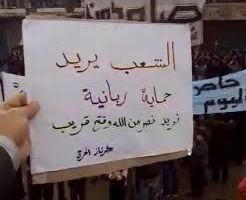 الشعب يريد
حماية ربانية
نريد نصر من الله وفتح قريب
كرناز الحرة
حاصر
اليوم